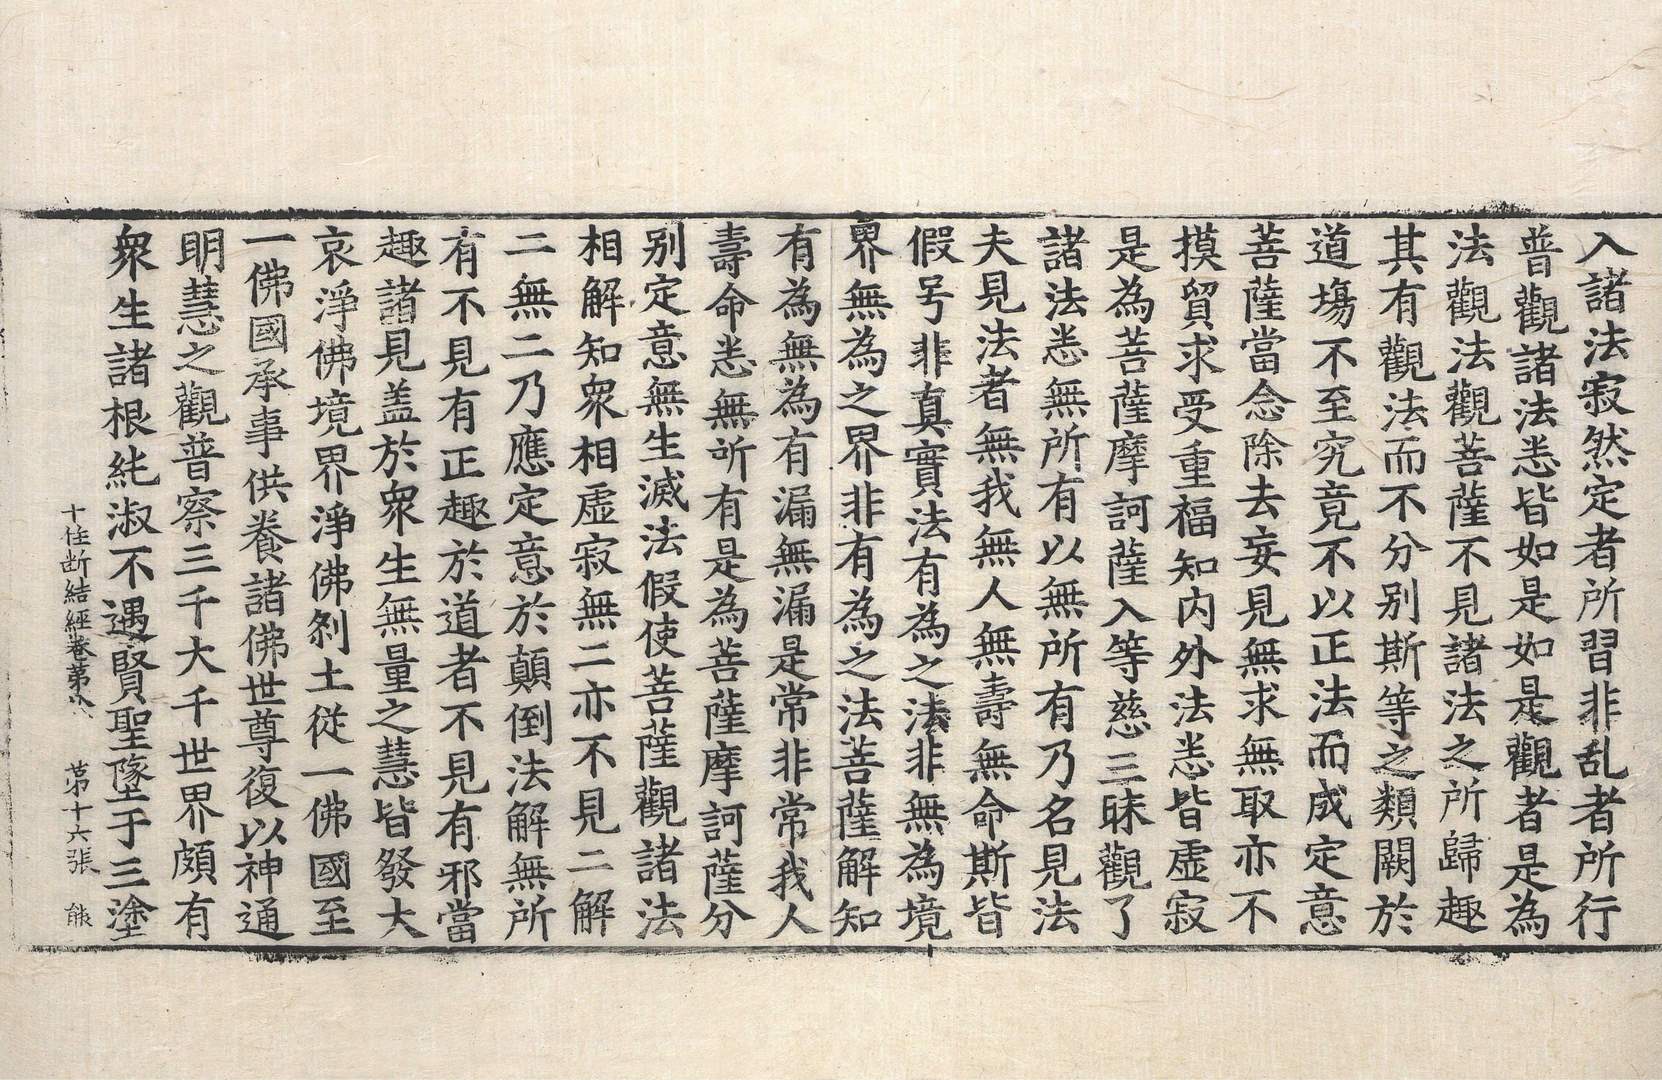 入諸法寂然定者所習非乱者所行
普觀諸法悉皆如是如是觀者是為
法觀法觀菩薩不見諸法之所歸趣
其有觀法而不分別斯等之類闕於
道塲不至究竟不以正法而成定意
菩薩當念除去妄見無求無取亦不
摸貿求受重福知內外法悉皆虛寂
是為菩薩摩訶薩入等慈三昧觀了
諸法悉無所有以無所有乃名見法
夫見法者無我無人無壽無命斯皆
假号非真實法有為之法非無為境
界無為之界非有為之法菩薩解知
有為無為有漏無漏是常非常我人
壽命悉無所有是為菩薩摩訶薩分
別定意無生滅法假使菩薩觀諸法
相解知衆相虛寂無二亦不見二解
二無二乃應定意於顛倒法解無所
有不見有正趣於道者不見有邪當
趣諸見盖於衆生無量之慧皆發大
哀淨佛境界淨佛刹土從一佛國至
一佛國承事供養諸佛世尊復以神通
明慧之觀普察三千大千世界頗有
衆生諸根純淑不遇賢聖墜于三塗
十住断結經卷第 第十六張 能